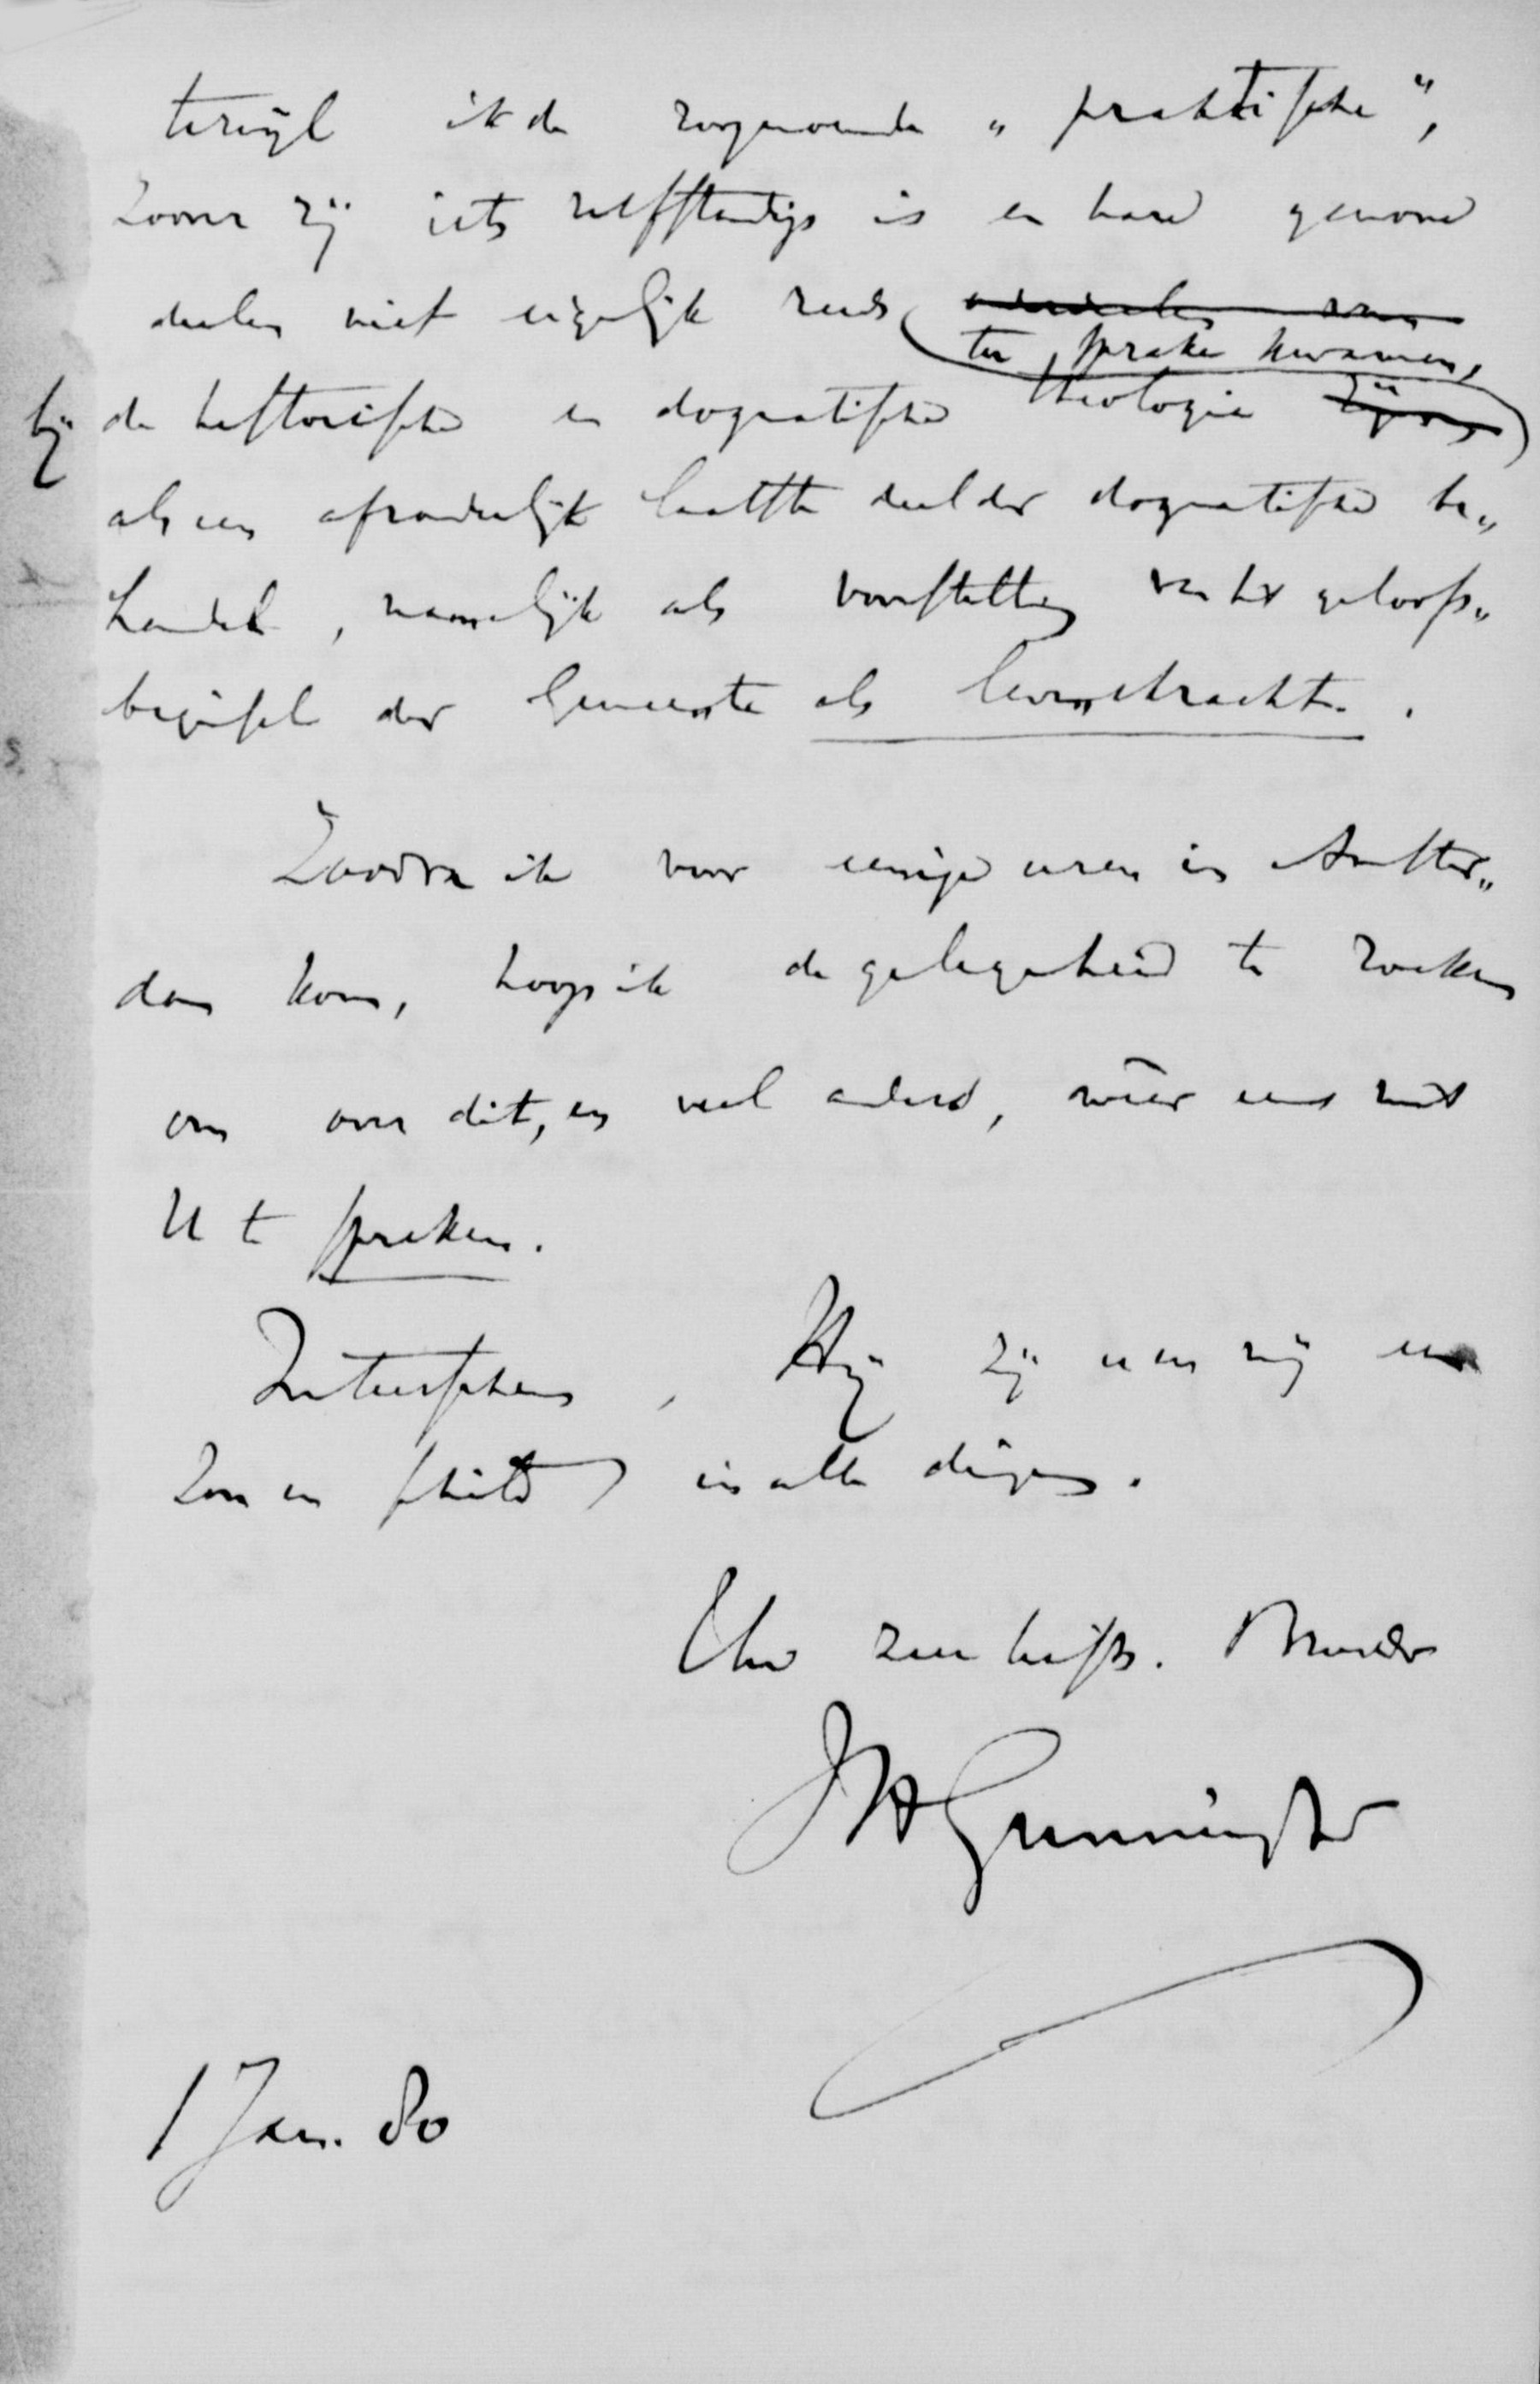 terwijl ik de zoogenoemde „praktische",
zoover zij iets zelfstandigs is en hare gewone
deelen niet eigenlijk reeds onderdeelen van
ter sprake kwamen,
bij de historische en dogmatische theologie zijn
als een afzonderlijk laatste deel der dogmatische be„
handel, namelijk als voorstelling van het geloofs„
beginsel der Gemeente als levenskracht.
Zoodra ik voor eenige uren in Amster„
dam kom, hoop ik de gelegenheid te zoeken
om over dit, en veel anders, wêer eens met
U te spreken.
Intusschen, Hij zij u en mij een
Zon en schild in alle dingen.
Uw zeer liefh. Broeder
JHGunningJr
1 Jan. 80